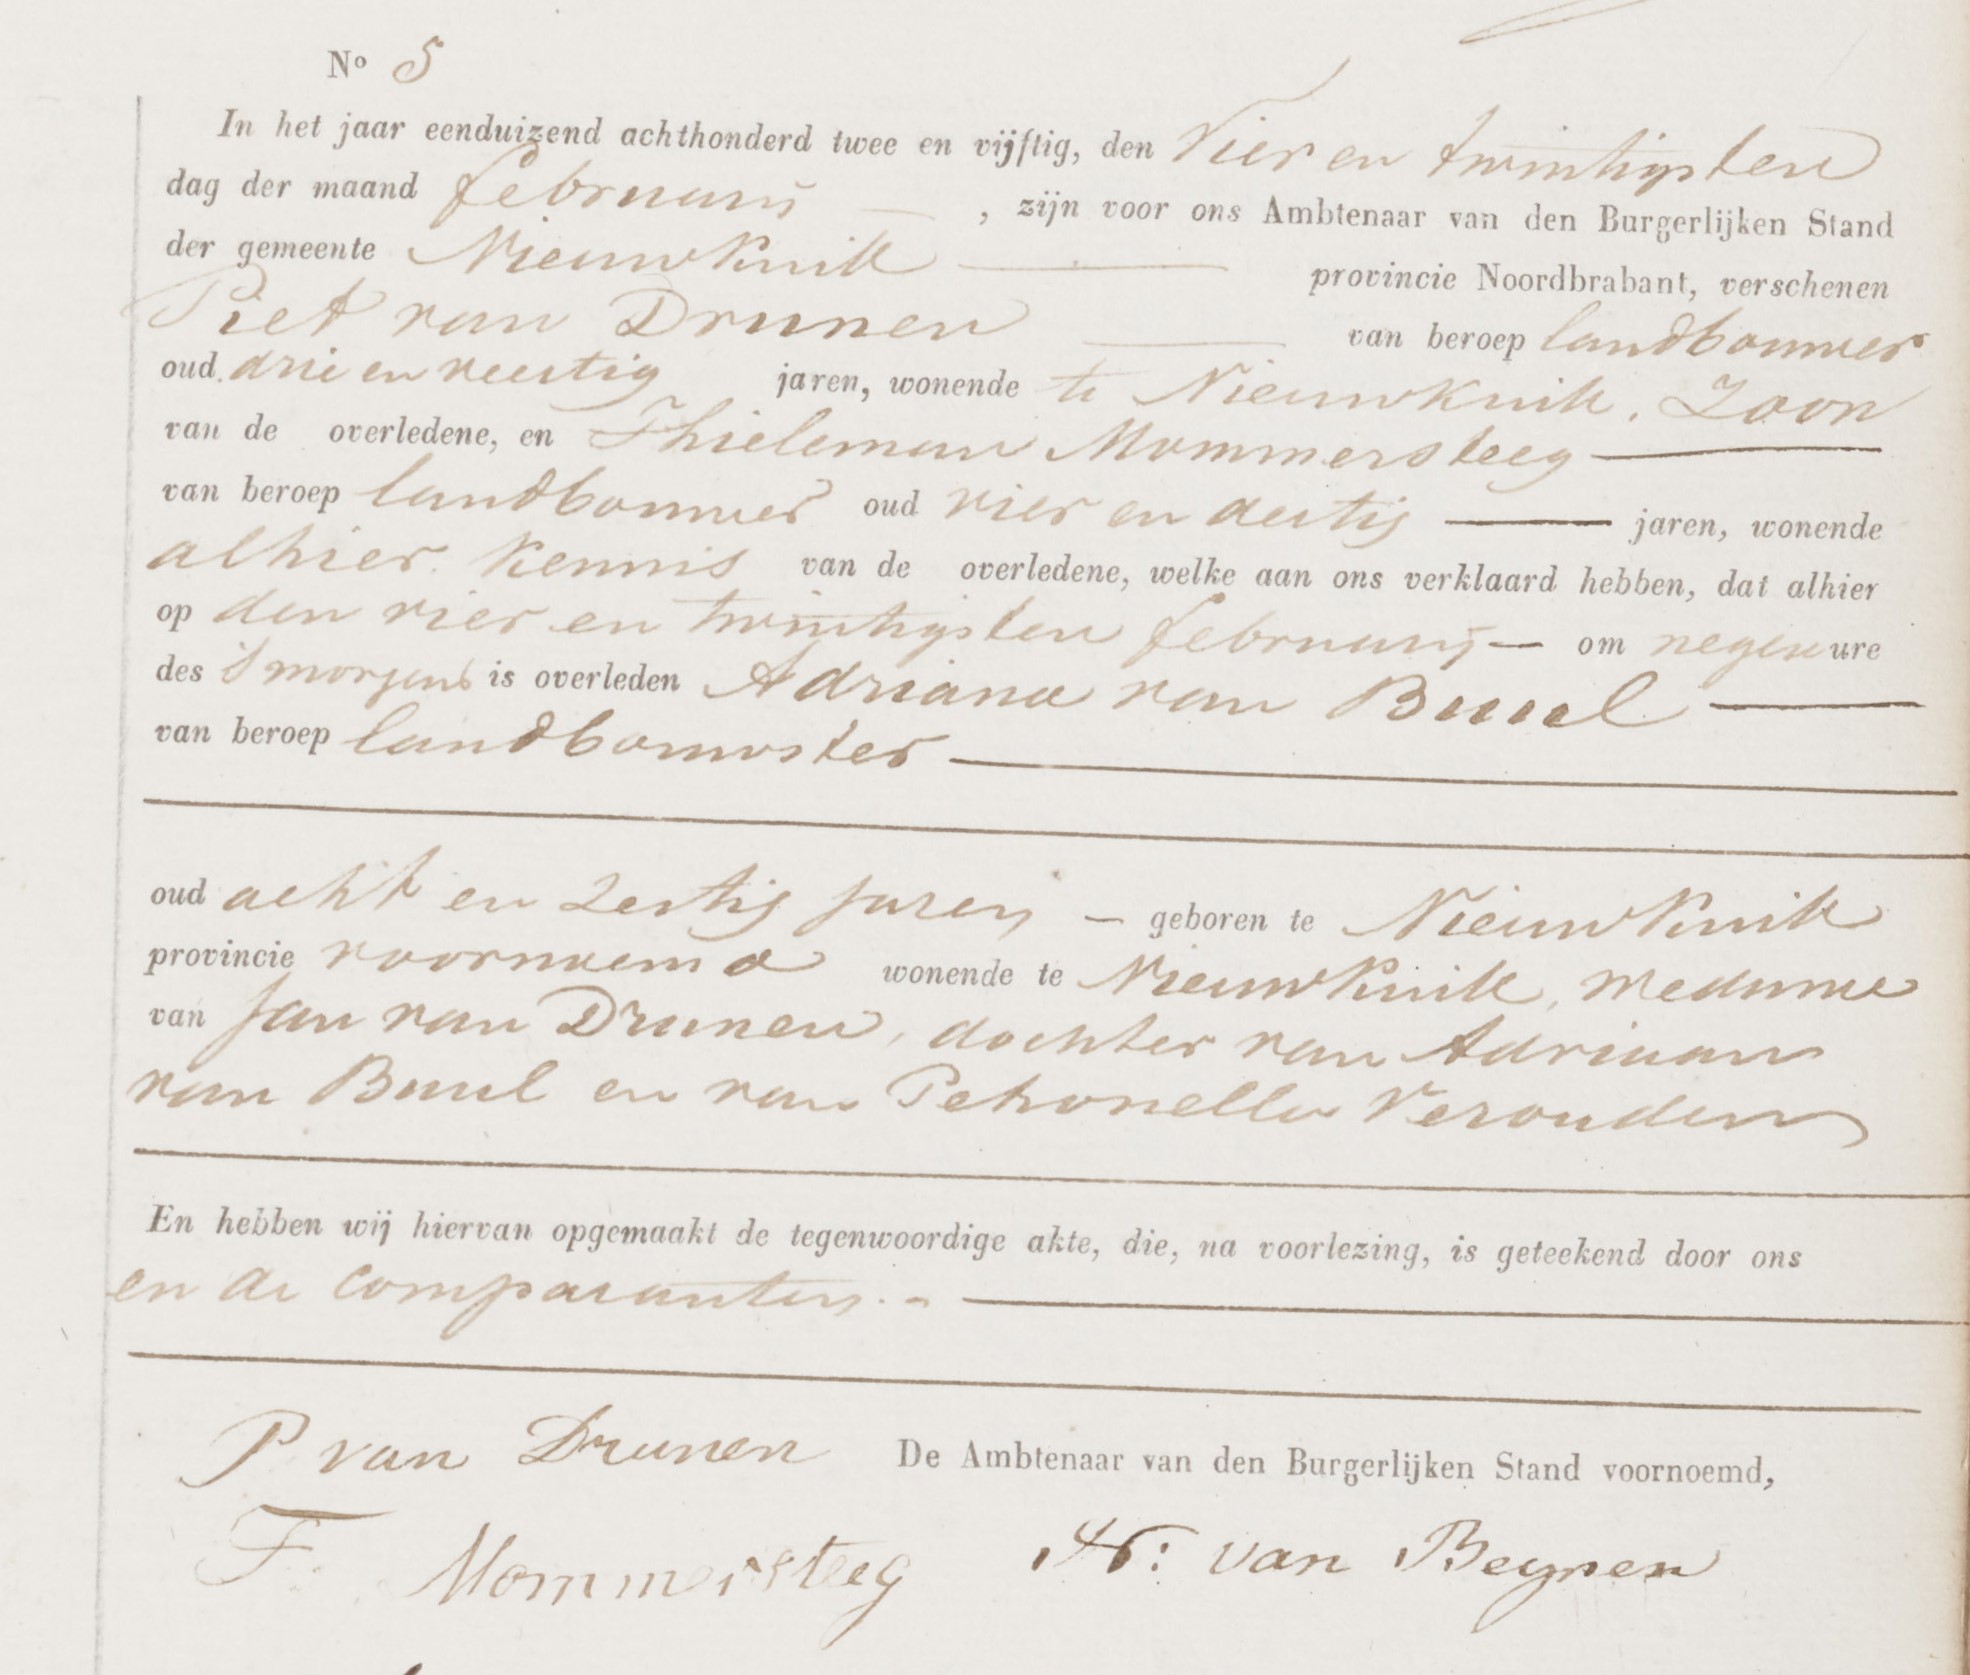 No 5
In het jaar eenduizend achthonderd twee en vijftig, den Vier en twintigsten
dag der maand februarij , zijn voor ons Ambtenaar van den Burgerlijken Stand
der gemeente Nieuwkuik provincie Noordbrabant, verschenen
Piet van Drunen van beroep landbouwer
oud drie en veertig jaren, wonende te Nieuwkuik, Zoon
van de overledene, en Thieleman Mommersteeg
van beroep landbouwer oud vier en dertig jaren, wonende
alhier kennis van de overledene, welke aan ons verklaard hebben, dat alhier
op den vier en twintigsten februarij om negen ure
des 's morgens is overleden Adriana van Buul
van beroep landbouwster
oud acht en zestig jaren geboren te Nieuwkuik
provincie voornoemd wonende te Nieuwkuik, weduwe
van Jan van Drunen, dochter van Adriaan
van Buul en van Petronella Verouden
En hebben wij hiervan opgemaakt de tegenwoordige akte, die, na voorlezing, is geteekend door ons
en de comparanten.
P van Drunen De Ambtenaar van den Burgerlijken Stand voornoemd,
Mommersteeg van Beynen